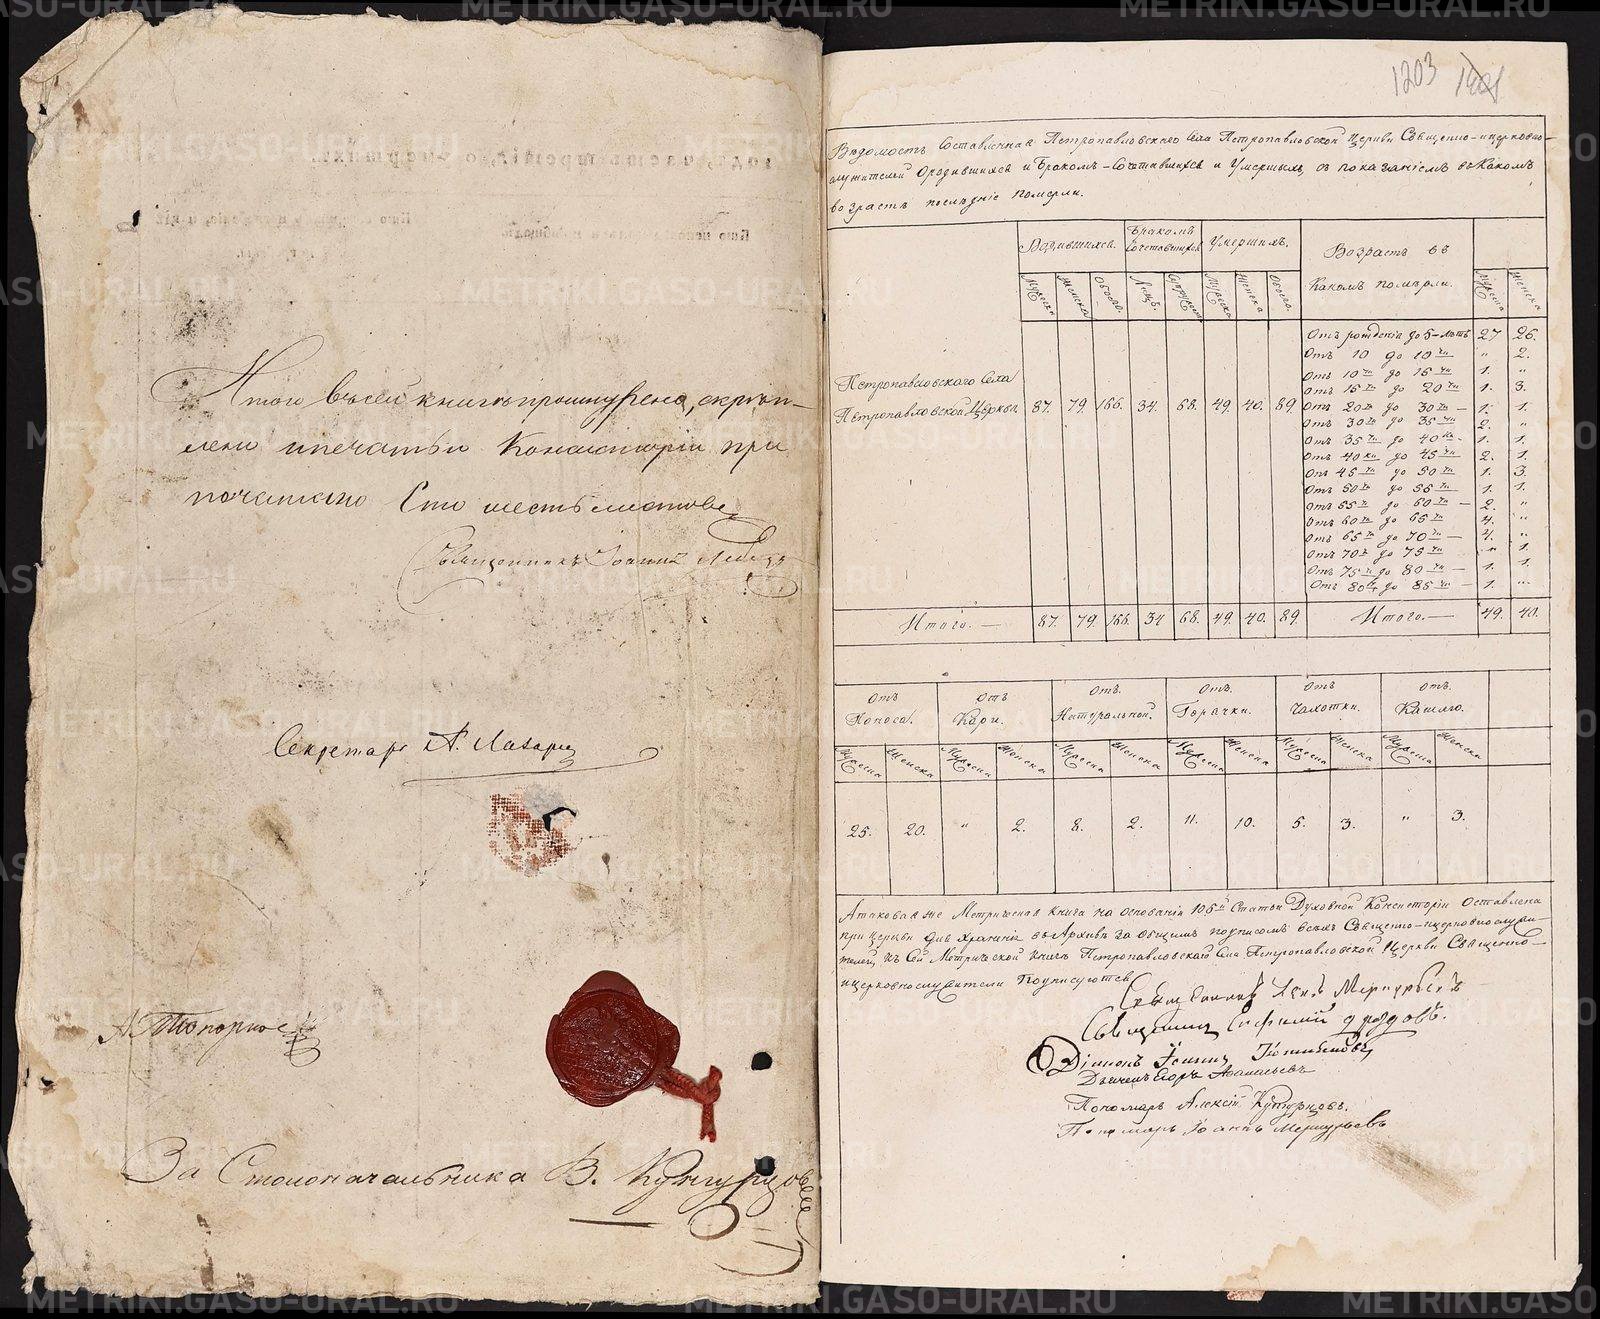 Итого въ сей книгѣ прошнурено, скрѣп-
лено и печатью Консисторіи при
печатано Сто шесть листовъ
Священникъ Іоаннъ
Секретарь А.
А. Топорков
За Столоначальника В. Кунгурцовъ
1203
Вѣдомость составленная Петропавловскаго села Петропавловской Церкви Священно-церковно-
служителей О родившихся и Бракомъ-сочетавшихся и Умершихъ, съ показаніемъ въ какомъ
возрастѣ послѣдніе померли.
Родившихся. Бракомъ сочетавшихся Умершихъ. Возрастъ въ
какомъ померли.
Мужеска Женска Обоего. Лицъ. Супружествъ Мужеска Женска Обоего. Мужеска Женска
Отъ рожденія до 5-лѣтъ 27 26.
Отъ 10 до 10ти " 2.
Отъ 10ти до 15ти 1. "
Отъ 15ти до 20ти 1. 3.
Петропавловскаго Села
Петропавловской Церкви. 87. 79. 166. 34. 68. 49. 40. 89.
Отъ 20ти до 30ти — 1. 1.
Отъ 30ти до 35ти 2. "
Отъ 35ти до 40ка. 1. 1.
Отъ 40ка до 45ти 2. 1.
Отъ 45ти до 50ти 1. 3.
Отъ 50ти до 55ти 1. 1.
Отъ 55ти до 60ти — 2. "
Отъ 60ти до 65ти 4. "
Отъ 65ти до 70ти — 4. "
Отъ 70ти до 75ти " 1.
Отъ 75ти до 80ти — 1. 1.
Отъ 80ти до 85ти — 1. "
Итого.— 87. 79. 166. 34 68. 49. 40. 89. Итого.— 49. 40.
Отъ Поноса. Отъ Кори. Отъ Натуральной. Отъ Горячки. Отъ Чахотки. Отъ Кашлю.
Мужеска Женска Мужеска Женска Мужеска Женска Мужеска Женска Мужеска Женска Мужеска Женска
25. 20. " 2. 8. 2. 11. 10. 5. 3. " 3.
А таковая же Метрическая книга на основаніи 105й Статьи Духовной Консисторіи Оставлена
при Церкви для храненія въ Архивѣ за общимъ подписомъ всѣхъ Священно-церковнослужи-
телей, къ Сей Метрической книгѣ Петропавловскаго Села Петропавловской Церкви Священно-
ицерковнослужители Подписуются
Священникъ Меркурьевъ
Священникъ Дроздовъ.
Діаконъ Іоаннъ
Дьячекъ Егоръ Афанасьевъ
Пономарь Алексій Кунгурцовъ.
Пономарь Іоаннъ Меркурьевъ
METRIKI.GASO-URAL.RU